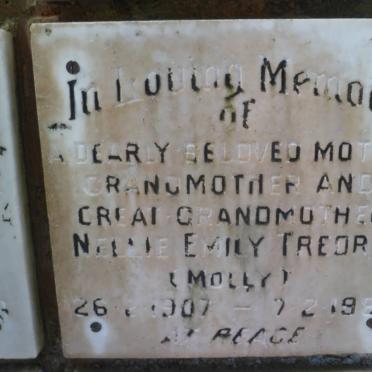 In Loving Memo
of
A DEARLY BELOVED MOT
GRANDMOTHER AND
GREAT GRANDMOTHE
NELLIE EMILY TREGR
(MOLLY)
26 1907 – 7.2.19
AT PEACE